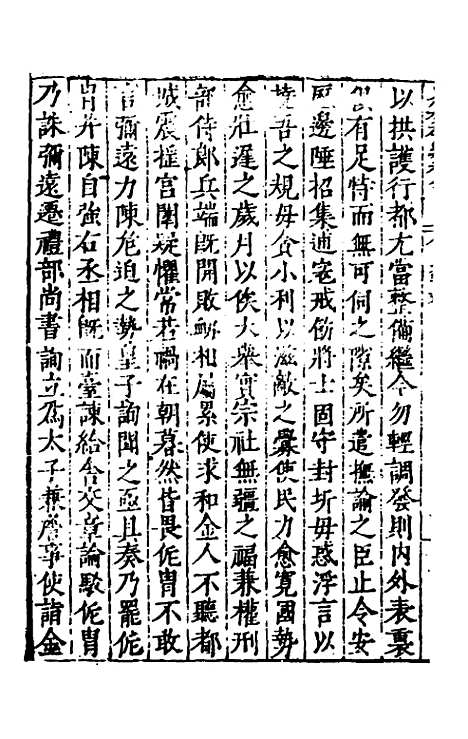 以拱護行都尤當整備繼今勿輕調發則内外表裏
俱有足恃而無可伺之隙矣所遣撫諭之臣止令安
邊陲招集逋寇戒飭將士固守封圻毋惑浮言以
撓吾之規毋貪小利以滋敵之釁使民力愈寬國勢
愈壯遲之歲月以俟大舉實宗社無疆之福兼權刑
部侍郎兵端既開敗衂相屬累使求和金人不聽都
城震搖宫闈疑懼常若禍在朝暮然皆畏侂冑不敢
言彌遠力陳危迫之勢皇子詢聞之亟具奏乃罷侂
冑并陳自強右丞相既而臺諫給舍交章論駁侂冑
乃誅彌遠遷禮部尚書詢立爲太子兼詹事使詣金